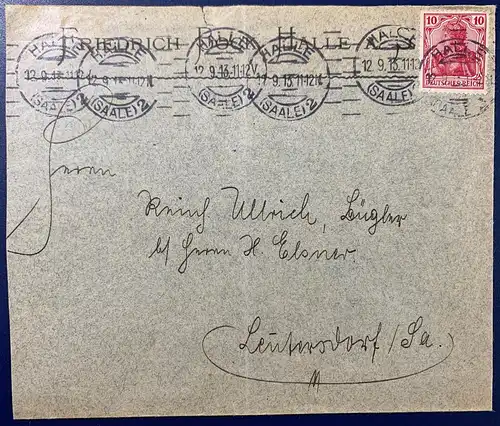 FRIEDRICH BOCK HALLE a. S.
HALLE
12.9.13.11-12V.
(SAALE) 2
HALLE
12.9.13.11-12V.
(SAALE) 2
HALLE
12.9.13.11-12V.
(SAALE) 2
HALLE
12.9.13.11-12V.
(SAALE) 2
HALLE
12.9.13.11-12V.
(SAALE) 2
HALLE
(SAALE)
10 10
DEUTSCHES REICH
Herrn
Reinh Ullrich, Bügler
b/ Herrn H. Elsner
Leutersdorf/Sa.